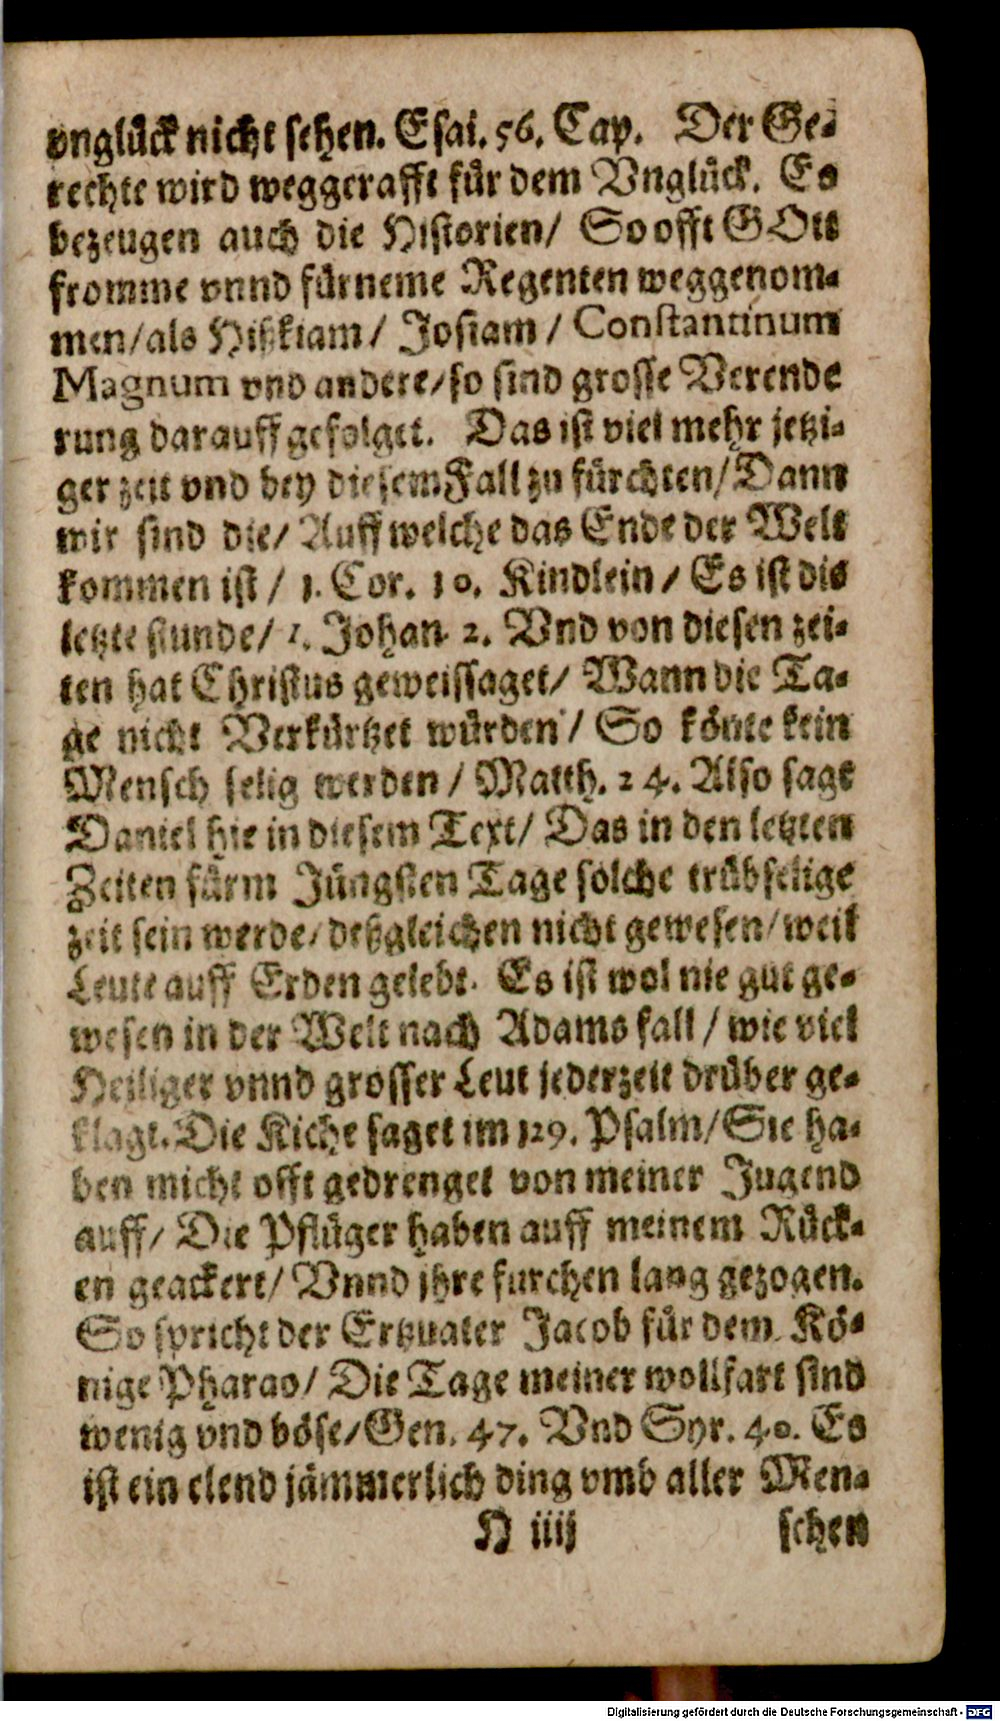 vnglück nicht sehen. Esai. 56. Cap. Der Ge-
rechte wird weggerafft für dem Vnglück. Es
bezeugen auch die Historien/ So offt GOtt
fromme vnnd fürneme Regenten weggenom-
men/als Hißkiam/ Josiam / Constantinum
Magnum vnd andere/so sind grosse Verende
rung darauff gefolget. Das ist viel mehr jetzi-
ger zeit vnd bey diesem Fall zu fürchten/Dann
wir sind die/ Auff welche das Ende der Welt
kommen ist / 1. Cor. 10. Kindlein / Es ist die
letzte stunde/ 1. Johan. 2. Vnd von diesen zei-
ten hat Christus geweissaget/ Wann die Ta-
ge nicht Verkürtzet würden / So könte kein
Mensch selig werden / Matth. 24. Also sagt
Daniel hie in diesem Text/ Das in den letzten
Zeiten fürm Jüngsten Tage solche trübselige
zeit sein werde/deßgleichen nicht gewesen/weil
Leute auff Erden gelebt. Es ist wol nie gut ge-
wesen in der Welt nach Adams fall / wie viel
Heiliger vnnd grosser Leut jederzeit drüber ge-
klagt. Die Kiche saget im 129. Psalm/Sie ha-
ben micht offt gedrenget von meiner Jugend
auff/ Die Pflüger haben auff meinem Rück-
en geackert/ Vnnd jhre furchen lang gezogen.
So spricht der Ertzuater Jacob für dem Kö-
nige Pharao/ Die Tage meiner wollfart sind
wenig vnd böse/Gen. 47. Vnd Syr. 40. Es
ist ein elend jämmerlich ding vmb aller Men-
H iiij schen
Digitalisierung gefördert durch die Deutsche Forschungsgemeinschaft - DFG